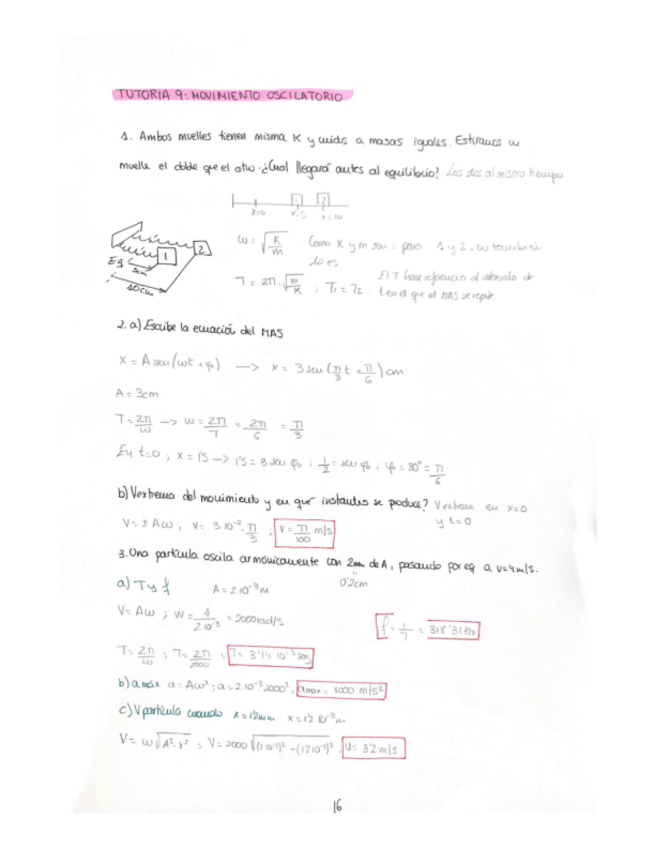 TUTORIA 9: MOVIMIENTO OSCILATORIO
1. Ambos muelles tienen misma K y unidos a masas iguales. Estiramos un
muelle el doble que el otro ¿Cual llegará antes al equilibrio? Los dos al mismo tiempo
1 2
x=0 x=5 x=10
1 2
Eq 5cm
10cm
ω = √K/m . Como K y m son = para 1 y 2, ω también
lo es
T = 2π·√m/K ; T₁ = T₂ . El T hace referencia al intervalo de
tiempo en el que el MAS se repite.
2. a) Escribe la ecuación del MAS
x = A sen(ωt + φ₀) → x = 3 sen(π/3 t + π/6) cm
A = 3cm
T = 2π/ω → ω = 2π/T = 2π/6 = π/3
En t=0 ; x = 1'5 → 1'5 = 3 sen φ₀ ; 1/2 = sen φ₀ ; φ₀ = 30° = π/6
b) Vextrema del movimiento y en qué instantes se produce? Vextrema en x=0
y t=0
V = ± Aω ; V = 3·10⁻²·π/3 ; V = π/100 m/s
3. Una partícula oscila armónicamente con 2mm de A, pasando por eq a v=4m/s.
0'2cm
a) T y f A = 2·10⁻³ m
V = Aω ; ω = 4/2·10⁻³ = 2000 rad/s
f = 1/T = 318'31 Hz
T = 2π/ω ; T = 2π/2000 = T = 3'14·10⁻³ seg
b) a máx a = Aω² ; a = 2·10⁻³·2000² ; amax = 8000 m/s²
c) V partícula cuando x = 1'2mm x = 1'2·10⁻³ m
V = ω√A²-x² ; V = 2000 √(2·10⁻³)² - (1'2·10⁻³)² ; V = 3'2 m/s
16